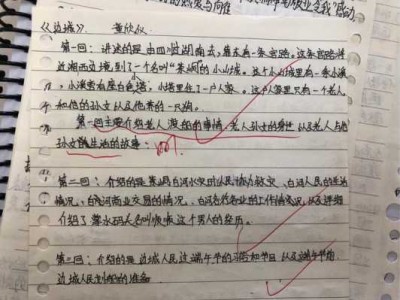 《边城》 董欣么
第一回：讲述的是由四川过湖南去，靠东有一条官路。这条官路将
近湘西边境到了一个名叫“茶峒”的小山城。这个小山城里有一条小溪
，小溪旁有座白色小塔，小塔里住了一户人家。这户人家里只有一个老人
和他的孙女以及他养的一只狗。
第一回主要介绍老人渡船的事情，老人孙女的身世以及老人与他
孙女生活的故事。
第二回：介绍的是茶峒白河水灾时人民协力救灾、白河人民的生活
情况、白河商业交易的情况、白河各行各业的工作情况以及详细
介绍了掌水码头名叫顺顺这个男人的经历。
第三回：介绍的是边城人民过端午节的习俗和节目以及端午节前
边城人民划船的准备。